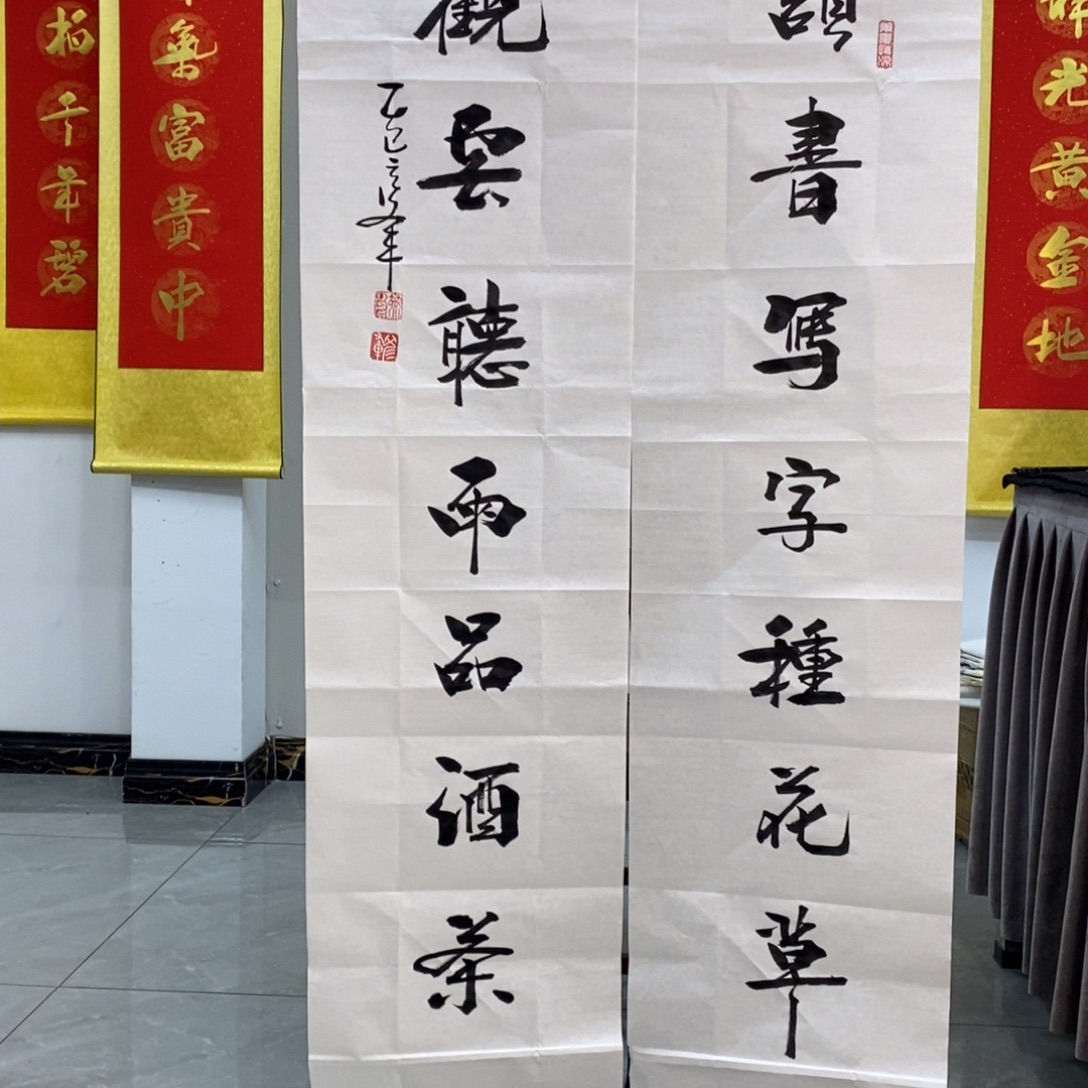 祥光黄金地
書寫字種花草
觀雲聽雨品酒茶
乙巳
氣富貴中
柏千年碧